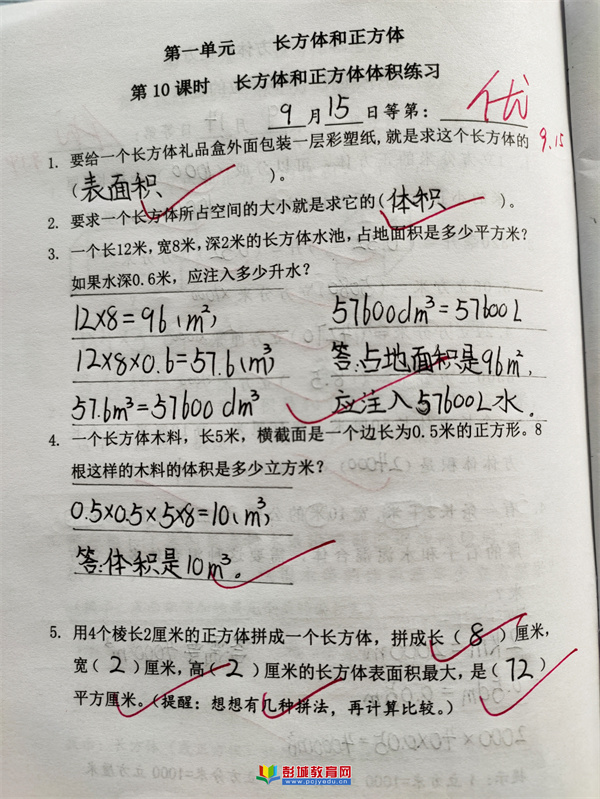 第一单元 长方体和正方体
第10课时 长方体和正方体体积练习
9月15日等第：优
9.15
1. 要给一个长方体礼品盒外面包装一层彩塑纸，就是求这个长方体的
（表面积）。
2. 要求一个长方体所占空间的大小就是求它的（体积）。
3. 一个长12米，宽8米，深2米的长方体水池，占地面积是多少平方米？
如果水深0.6米，应注入多少升水？
12×8=96(m²)
12×8×0.6=57.6(m³)
57.6m³=57600dm³
57600dm³=57600L
答:占地面积是96m²,
应注入57600L水.
4. 一个长方体木料，长5米，横截面是一个边长为0.5米的正方形。8
根这样的木料的体积是多少立方米？
0.5×0.5×5×8=10(m³)
答:体积是10m³。
5. 用4个棱长2厘米的正方体拼成一个长方体，拼成长（8）厘米，
宽（2）厘米，高（2）厘米的长方体表面积最大，是（72）
平方厘米。（提醒：想想有几种拼法，再计算比较。）
彭城教育网
www.pcjyedu.cn